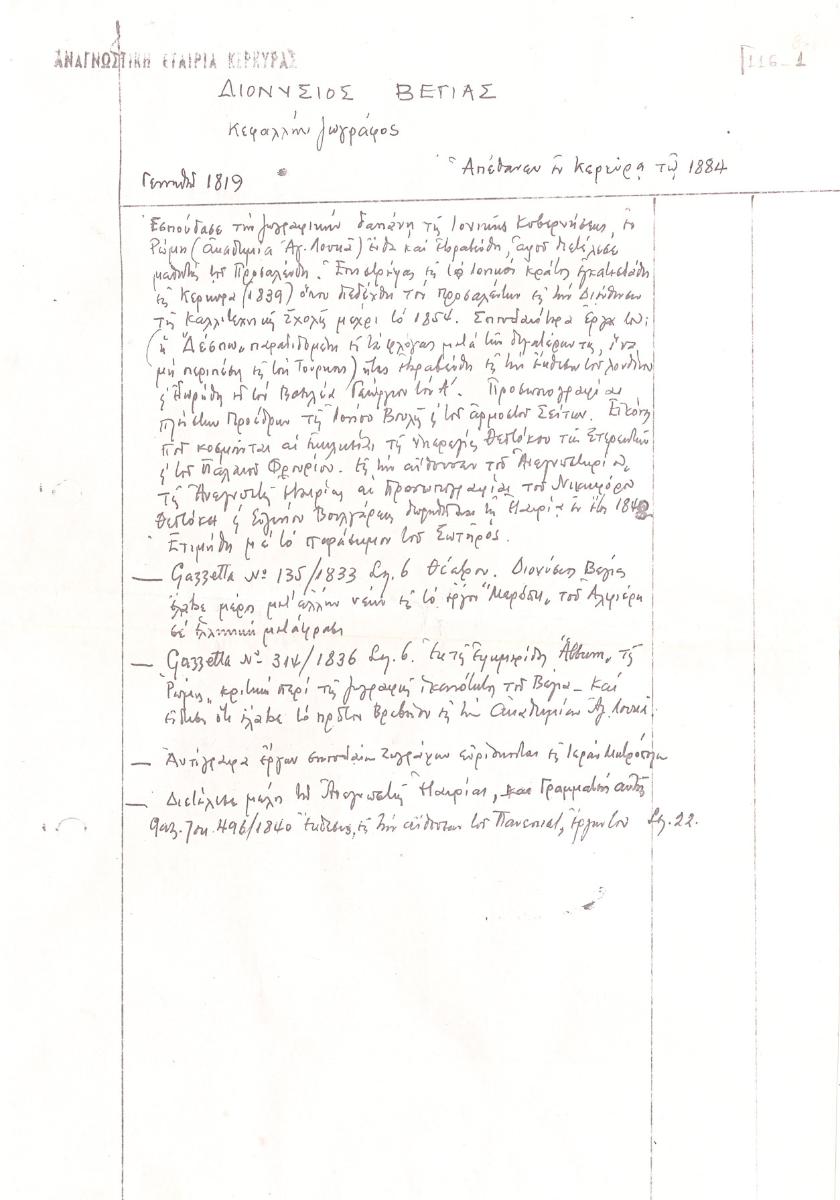 ΑΝΑΓΝΩΣΤΙΚΗ ΕΤΑΙΡΙΑ ΚΕΡΚΥΡΑΣ
116-1
ΔΙΟΝΥΣΙΟΣ ΒΕΓΙΑΣ
Κεφαλλήν ζωγράφος
Γεννηθείς 1819
Ἀπέθανεν ἐν Κερκύρᾳ τῷ 1884
Ἐσπούδασε τὴν ζωγραφικὴν δαπάνῃ τῆς Ἰονικῆς Κυβερνήσεως, ἐν
Ρώμῃ (Ἀκαδημία Ἁγ. Λουκᾶ) ἔνθα καὶ ἐβραβεύθη, ἀφοῦ διετέλεσε
μαθητὴς τοῦ Προσαλένδη. Ἐπιστρέψας εἰς τὸ Ἰονικὸν κράτος ἐγκατεστάθη
εἰς Κέρκυρα (1839) ὅπου διεδέχθη τὸν Προσαλένδην εἰς τὴν Διεύθυνσιν
τῆς Καλλιτεχνικῆς Σχολῆς μέχρι τὸ 1854. Σπουδαιότερα ἔργα του:
(ἡ "Δέσπω" παραδιδομένη εἰς τὰς φλόγας μετὰ τῶν θυγατέρων της, ἵνα
μὴ περιπέσῃ εἰς τοὺς Τούρκους) ἥτις ἐβραβεύθη εἰς τὴν ἔκθεσιν τοῦ Λονδίνου
ἐδωρήθη εἰς τὸν Βασιλέα Γεώργιον τὸν Α'. Προσωπογραφίαι
πλείστων Προέδρων τῆς Ἰονίου Βουλῆς καὶ τοῦ ἁρμοστοῦ Σείτων. Εἰκόνες
ποὺ κοσμοῦνται αἱ ἐκκλησίαι τῆς Ὑπεραγίας Θεοτόκου τῶν
καὶ τοῦ Παλαιοῦ Φρουρίου. Εἰς τὴν αἴθουσαν τοῦ Ἀναγνωστηρίου
τῆς Ἀναγνωστικῆς Ἑταιρίας αἱ προσωπογραφίαι τοῦ Νικηφόρου
Θεοτόκη καὶ Εὐγενίου Βουλγάρεως δωρηθεῖσαι τῇ Ἑταιρίᾳ ἐν ἔτει 1848
Ἐτιμήθη μὲ τὸ παράσημον τοῦ Σωτῆρος.
— Gazzetta Nº 135/1833 Σελ. 6 Θέατρον. Διονύσιος Βεγίας
ἔλαβε μέρος μετ' ἄλλων νέων εἰς τὸ ἔργον "Μερόπη" τοῦ Ἀλφιέρη
σὲ ἑλληνικὴ μετάφραση
— Gazzetta Nº 314/1836 Σελ. 6. Ἐκ τῆς Ἐφημερίδος Album, τῆς
Ρώμης, κριτικὴ περὶ τῆς ζωγραφικῆς ἱκανότητος τοῦ Βεγία — Καὶ
εἴδησις ὅτι ἔλαβε τὸ πρῶτον βραβεῖον εἰς τὴν Ἀκαδημίαν Ἁγ. Λουκᾶ.
— Ἀντίγραφα ἔργων σπουδαίων ζωγράφων εὑρίσκονται εἰς Ἱερὰν Μητρόπολιν
— Διετέλεσε μέλος τῆς Ἀναγνωστικῆς Ἑταιρίας, καὶ Γραμματεὺς αὐτῆς
Gaz. Ion. 496/1840 Ἔκθεσις εἰς τὴν αἴθουσαν τοῦ Πανεπιστ. ἔργων του Σελ. 22.